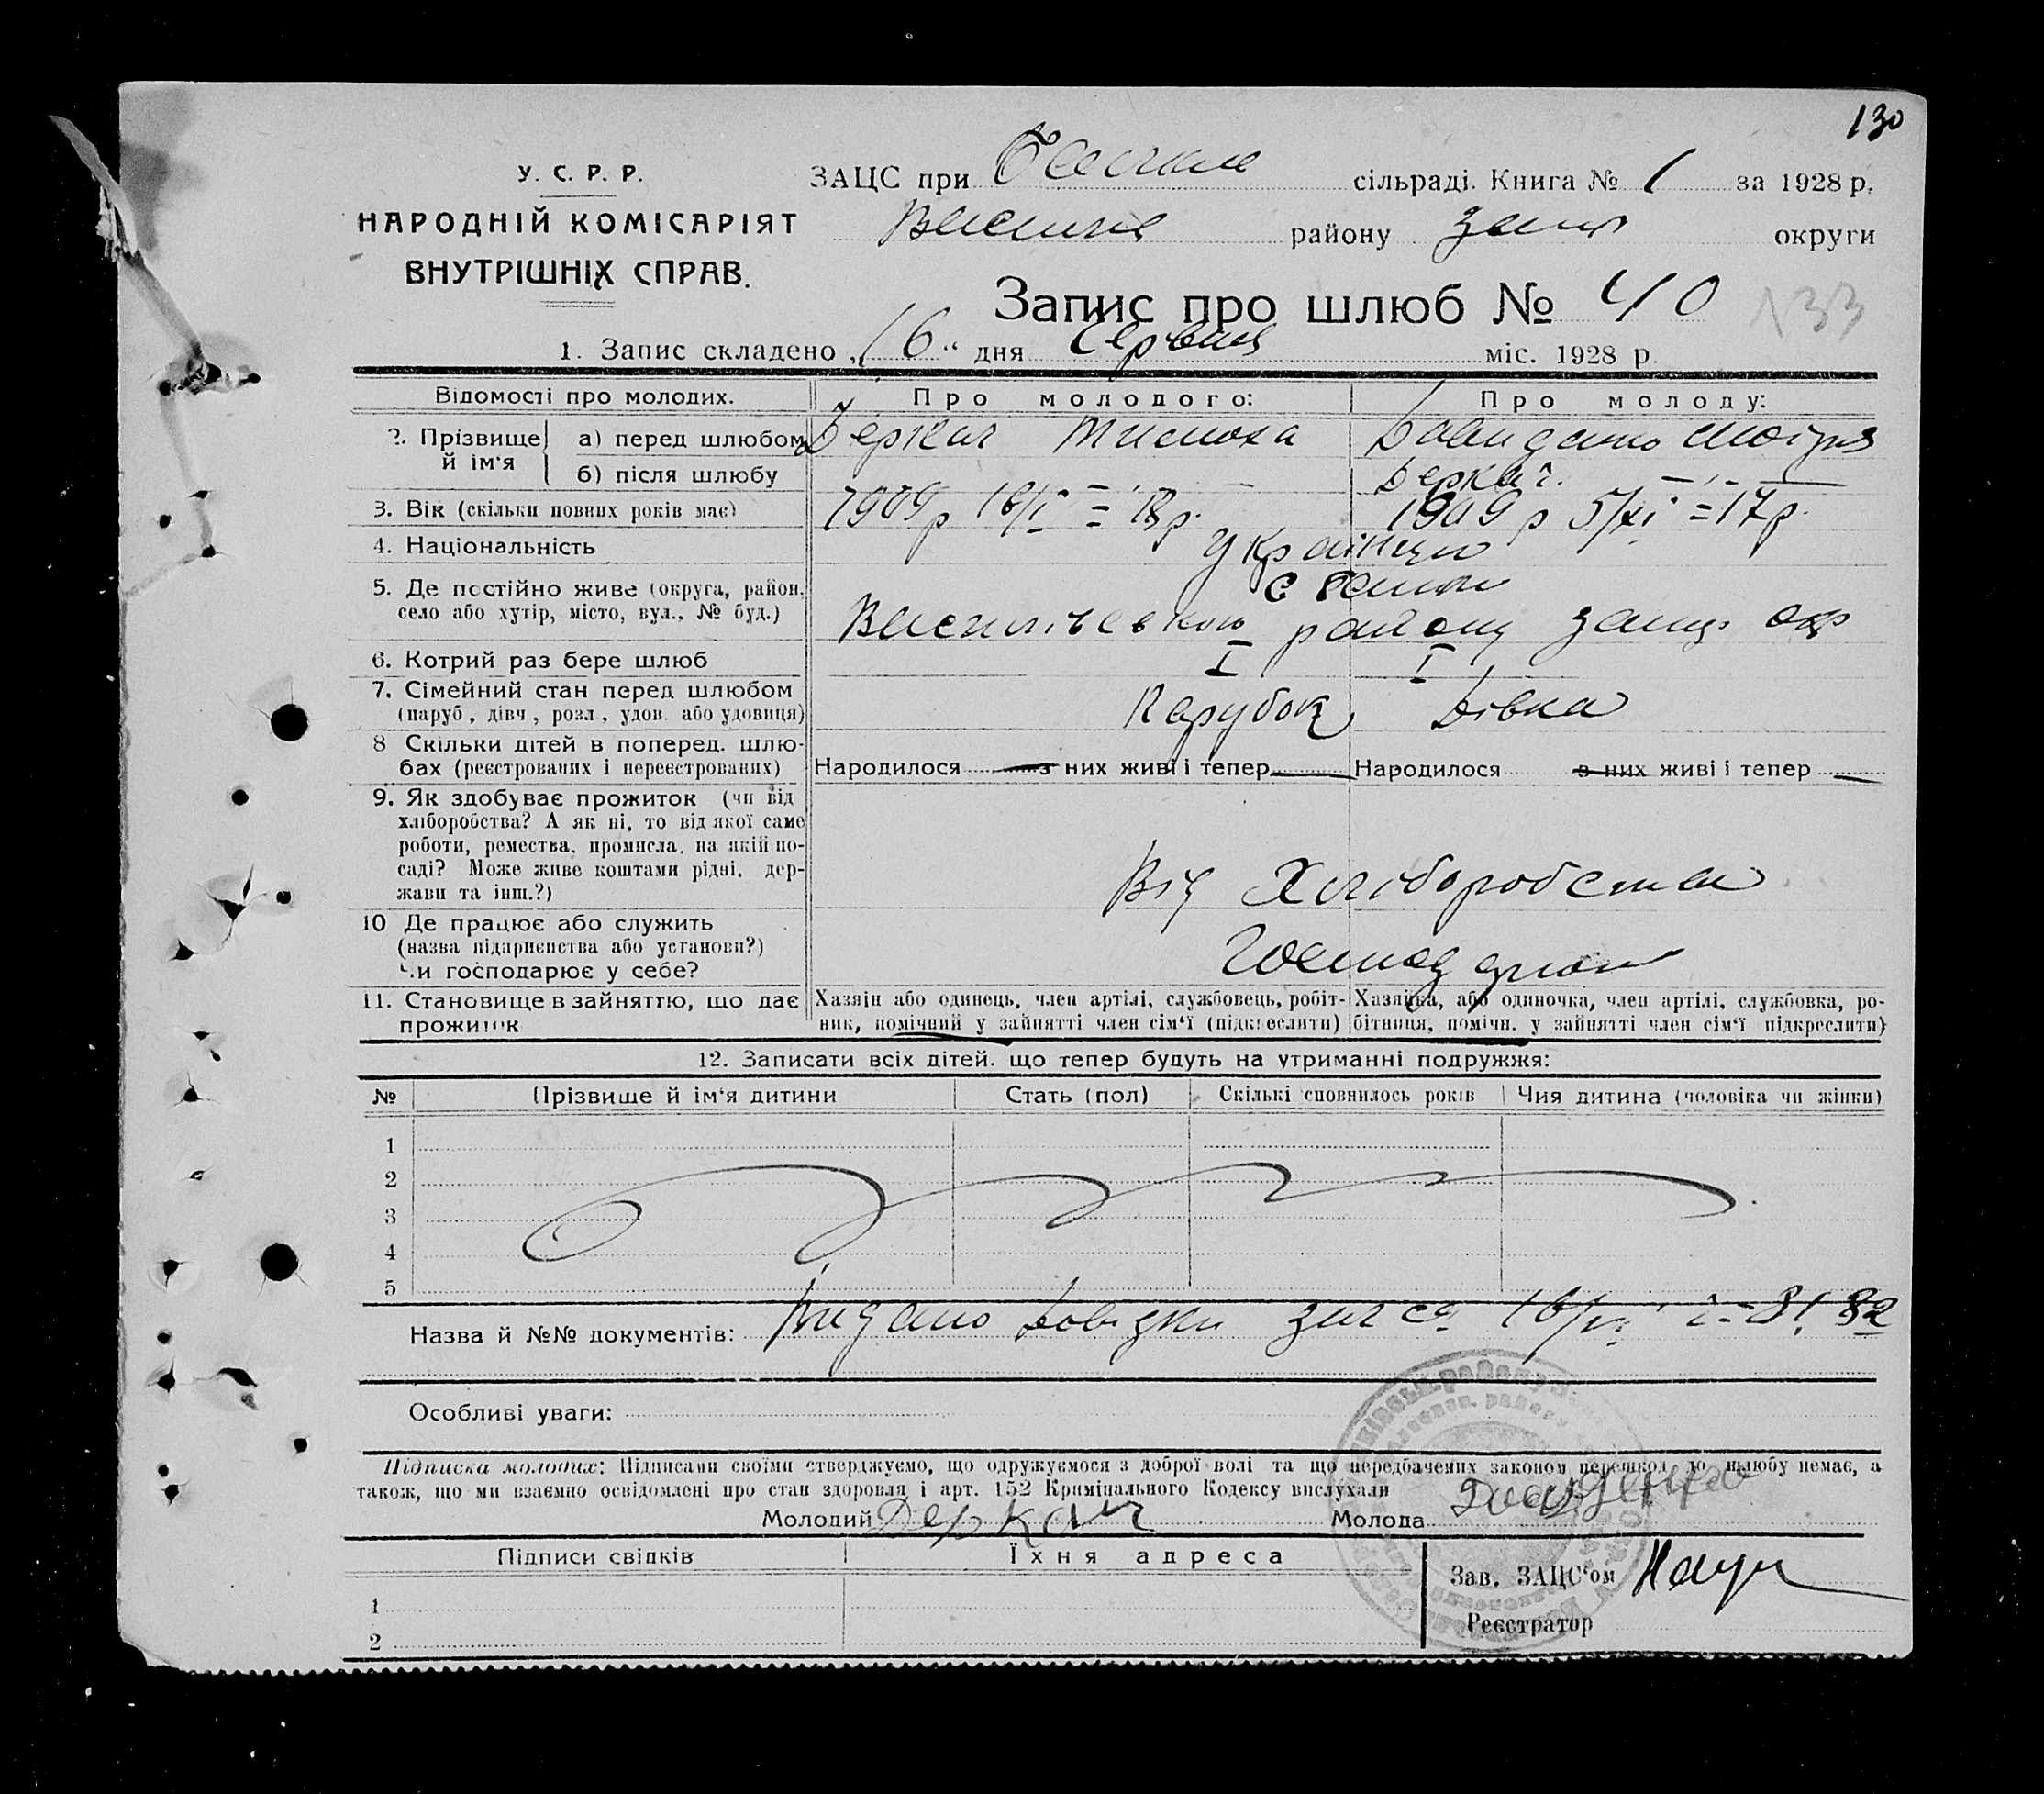 130
У. С. Р. Р.
НАРОДНІЙ КОМІСАРІЯТ
ВНУТРІШНІХ СПРАВ.
ЗАЦС при сільраді. Книга № 1 за 1928 р.
району округи
Запис про шлюб № 40 133
1. Запис складено „16“ дня Червня міс. 1928 р
Відомості про молодих. Про молодого: Про молоду:
2. Прізвище й ім'я
а) перед шлюбом Деркач Тимоха Давиденко
б) після шлюбу Деркач.
3. Вік (скільки повних років має) 1909 р 16/І = 18 р. 1909 р 5/ХІ = 17 р.
4. Національність Українці
5. Де постійно живе (округа, район,
село або хутір, місто, вул., № буд.) Василівського району Запор окр
6. Котрий раз бере шлюб І І
7. Сімейний стан перед шлюбом
(паруб, дівч, розл, удов. або удовиця) Парубок Дівка
8 Скільки дітей в поперед. шлю-
бах (реєстрованих і нереєстрованих) Народилося з них живі і тепер Народилося з них живі і тепер
9. Як здобуває прожиток (чи від
хліборобства? А як ні, то від якої саме
роботи, ремества, промисла, на якій по-
саді? Може живе коштами рідні, дер-
жави та інш.?) Від Хліборобства
10 Де працює або служить
(назва підприємства або установи?)
Чи господарює у себе?
11. Становище в зайняттю, що дає
прожиток
Хазяїн або одинець, член артілі, службовець, робіт-
ник, помічний у зайнятті член сім'ї (підкреслити)
Хазяйка, або одиночка, член артілі, службовка, ро-
бітниця, помічн. у зайнятті член сім'ї підкреслити)
12. Записати всіх дітей. що тепер будуть на утриманні подружжя:
№ Прізвище й ім'я дитини Стать (пол) Скількі сповнилось років Чия дитина (чоловіка чи жінки)
1
2
3
4
5
Назва й №№ документів: Видано довідки 81 82
Особливі уваги:
Підписка молодих: Підписами своїми стверджуємо, що одружуємося з доброї волі та що передбачених законом перешкод до шлюбу немає, а
також, що ми взаємно освідомлені про стан здоровля і арт. 152 Кримінального Кодексу вислухали
Молодий Деркач Молода
Підписи свідків Їхня адреса
Зав. ЗАЦС'ом
Реєстратор
1
2